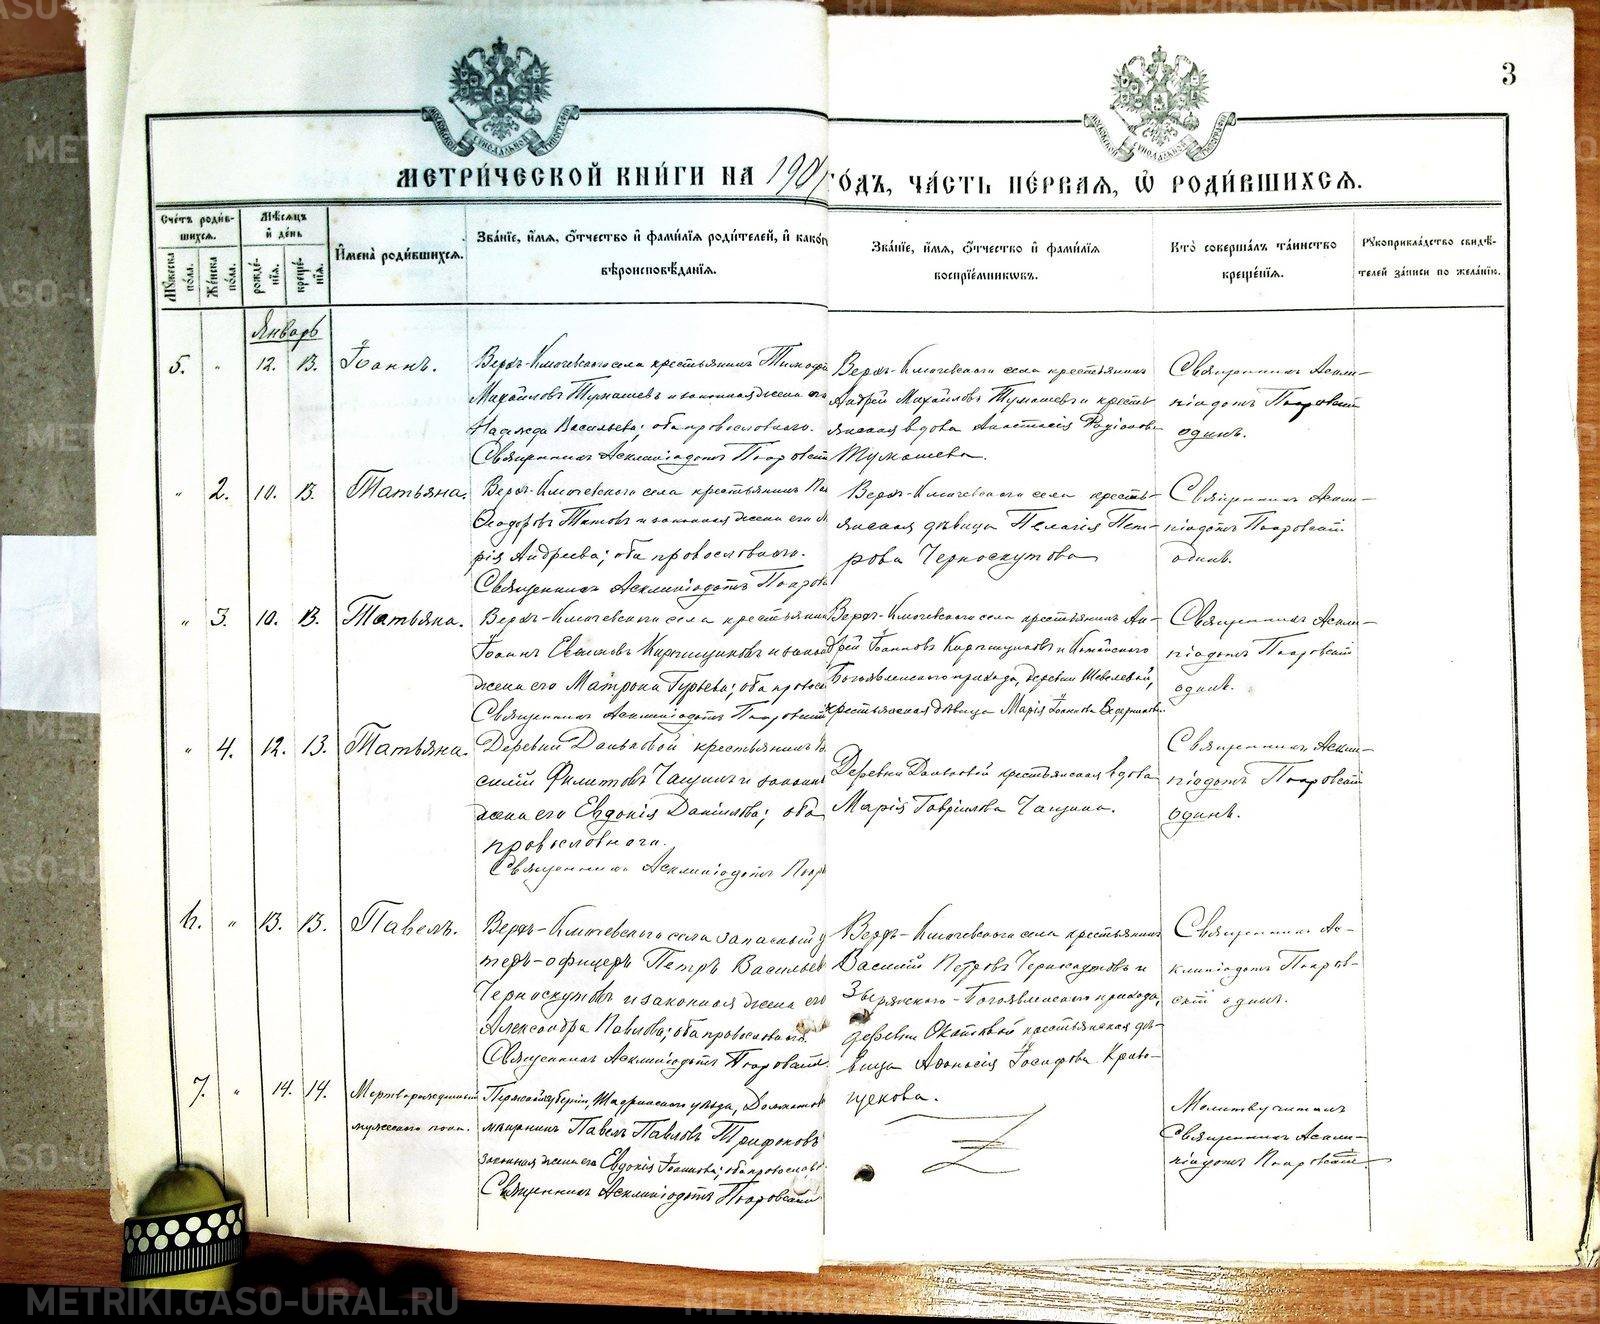 3
МЕТРИ́ЧЕСКОЙ КНИ́ГИ НА 1901 ГО́ДЪ, ЧА́СТЬ ПЕ́РВАЯ, Ѡ РОДИ́ВШИХСЯ.
Сче́тъ роди́в-
шихся.
Мѣ́сяцъ
и҆ де́нь
Му́жеска по́ла.
Же́нска по́ла.
рожде́-
нїя.
креще́-
нїя.
И҆мена̀ роди́вшихся.
Зва́нїе, и҆́мя, ѻ҆́тчество и҆ фами́лїя роди́телей, и҆ како́г
вѣроисповѣ́данїя.
Зва́нїе, и҆́мя, ѻ҆́тчество и҆ фами́лїя
воспрїе́мникѡвъ.
Кто̀ соверша́лъ та́инство
креще́нїя.
Рукоприкла́дство свидѣ́-
телей за́писи по жела́нїю.
Январь
5. " 12. 13. Іоаннъ.
Верхъ-Ключевского села крестьянинъ Тимофе
Михайловъ Тумашевъ и законная жена его
Надежда Васильева; оба православного.
Священникъ Асклипіодотъ Покровскій
Верхъ-Ключевского села крестьянинъ
Андрей Михайловъ Тумашевъ и кресть-
янская вдова Анастасія Родіонова
Тумашева.
Священникъ Аскли-
піодотъ Покровскій
одинъ.
" 2. 10. 13. Татьяна.
Верхъ-Ключевского села крестьянинъ
Ѳеодоровъ Титовъ и законная жена его Ма
рія Андреева; оба православного.
Священникъ Асклипіодотъ Покров
Верхъ-Ключевского села кресть-
янская дѣвица Пелагія Пет-
рова Черноскутова
Священникъ Аскли-
піодотъ Покровскій
одинъ.
" 3. 10. 13. Татьяна.
Верхъ-Ключевского села крестьянин
Іоаннъ Евѳимовъ Кирпищиковъ и закон
жена его Матрона Гурьева; оба правосл
Священникъ Асклипіодотъ Покровскій
Верхъ-Ключевского села крестьянинъ Ан-
дрей Іоанновъ Кирпищиковъ и
Богоявленского прихода, деревни Шевелевой,
крестьянская дѣвица Марія Іоаннова
Священникъ Аскли-
піодотъ Покровскій
одинъ.
" 4. 12. 13. Татьяна.
Деревни Даньковой крестьянинъ Ва
силій Филитовъ Чащинъ и законн
жена его Евдокія Даніилова; оба
православного.
Священникъ Асклипіодотъ Покр
Деревни Даньковой крестьянская вдова
Марія Гавріилова Чащина.
Священникъ Аскли-
піодотъ Покровскій
одинъ.
6. " 13. 13. Павелъ.
Верхъ-Ключевского села запасный у
теръ-офицеръ Петръ Васильев
Черноскутовъ и законная жена его
Александра Павлова; оба православного.
Священникъ Асклипіодотъ Покровскій
Верхъ-Ключевского села крестьянинъ
Василій Петровъ Черноскутовъ и
Зырянского-Богоявленского прихода,
деревни крестьянская дѣ-
вица Аѳанасія Іосифова Криво-
щекова.
Священникъ Ас-
клипіодотъ Покров-
скій одинъ.
7. " 14. 14. Мертворожденный
мужеского пола.
Пермской губерніи, Шадринского уѣзда, Далматов
мѣщанинъ Павелъ Павловъ Трифоновъ
законная жена его Евдокія Іоаннова; оба православ
Священникъ Асклипіодотъ Покровскій
Молитву читалъ
Священникъ Аскли-
піодотъ Покровскій
METRIKI.GASO-URAL.RU